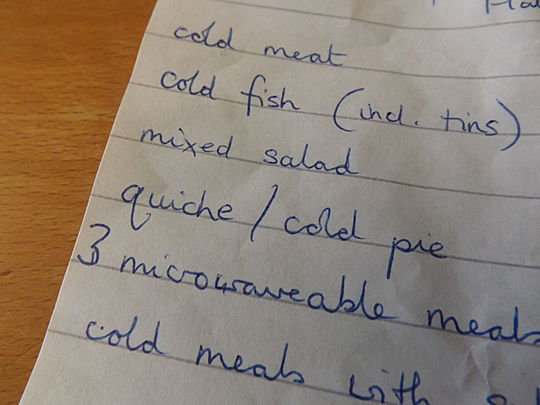 cold meat
cold fish (incl. tins)
mixed salad
quiche / cold pie
3 microwaveable meals
cold meals with